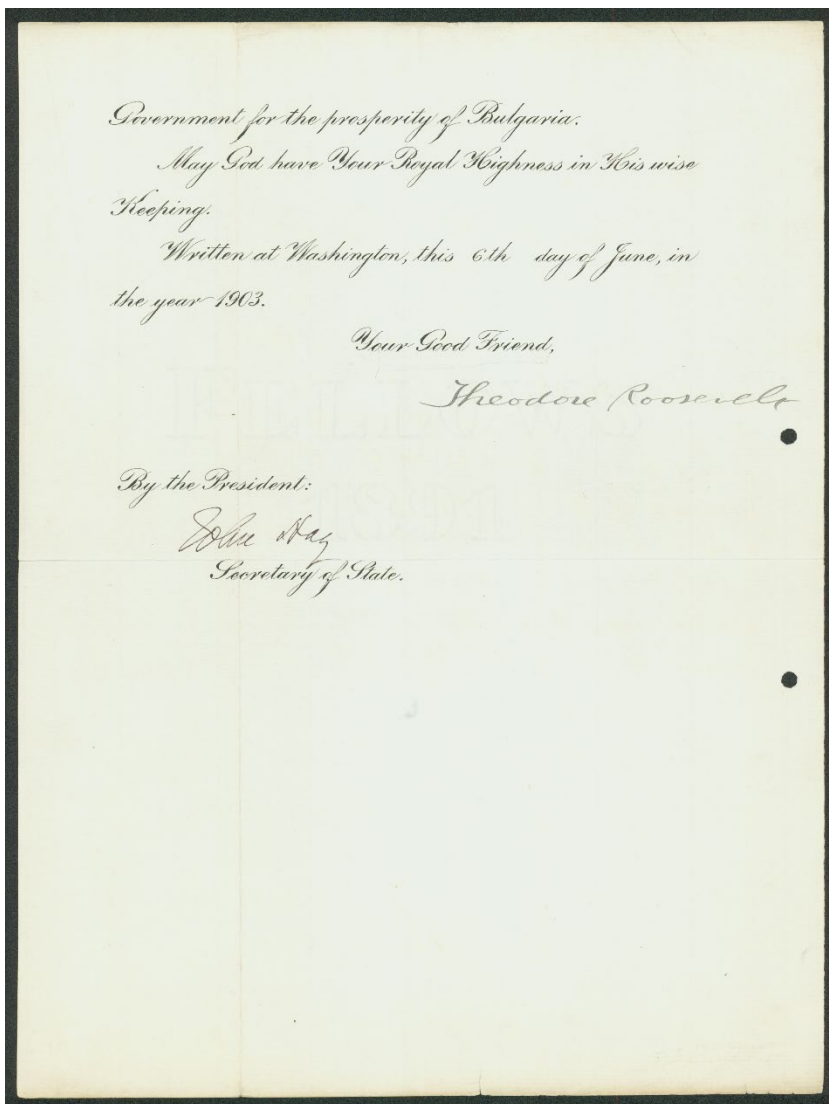 Government for the prosperity of Bulgaria.
May God have Your Royal Highness in His wise
Keeping.
Written at Washington, this 6th day of June, in
the year 1903.
Your Good Friend,
Theodore Roosevelt
By the President:
John Hay
Secretary of State.